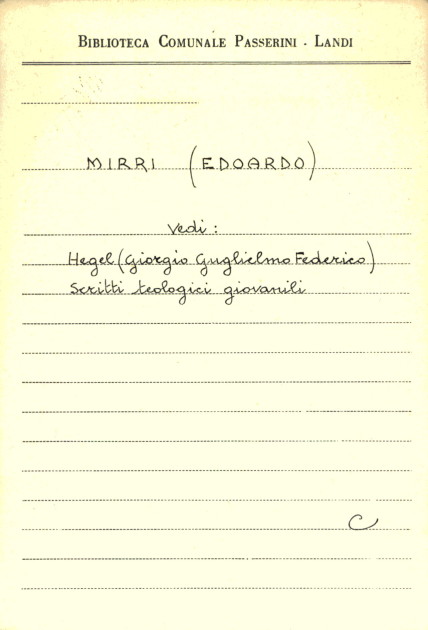 BIBLIOTECA COMUNALE PASSERINI - LANDI
MIRRI (EDOARDO)
Vedi:
Hegel (Giorgio Guglielmo Federico)
Scritti teologici giovanili
C